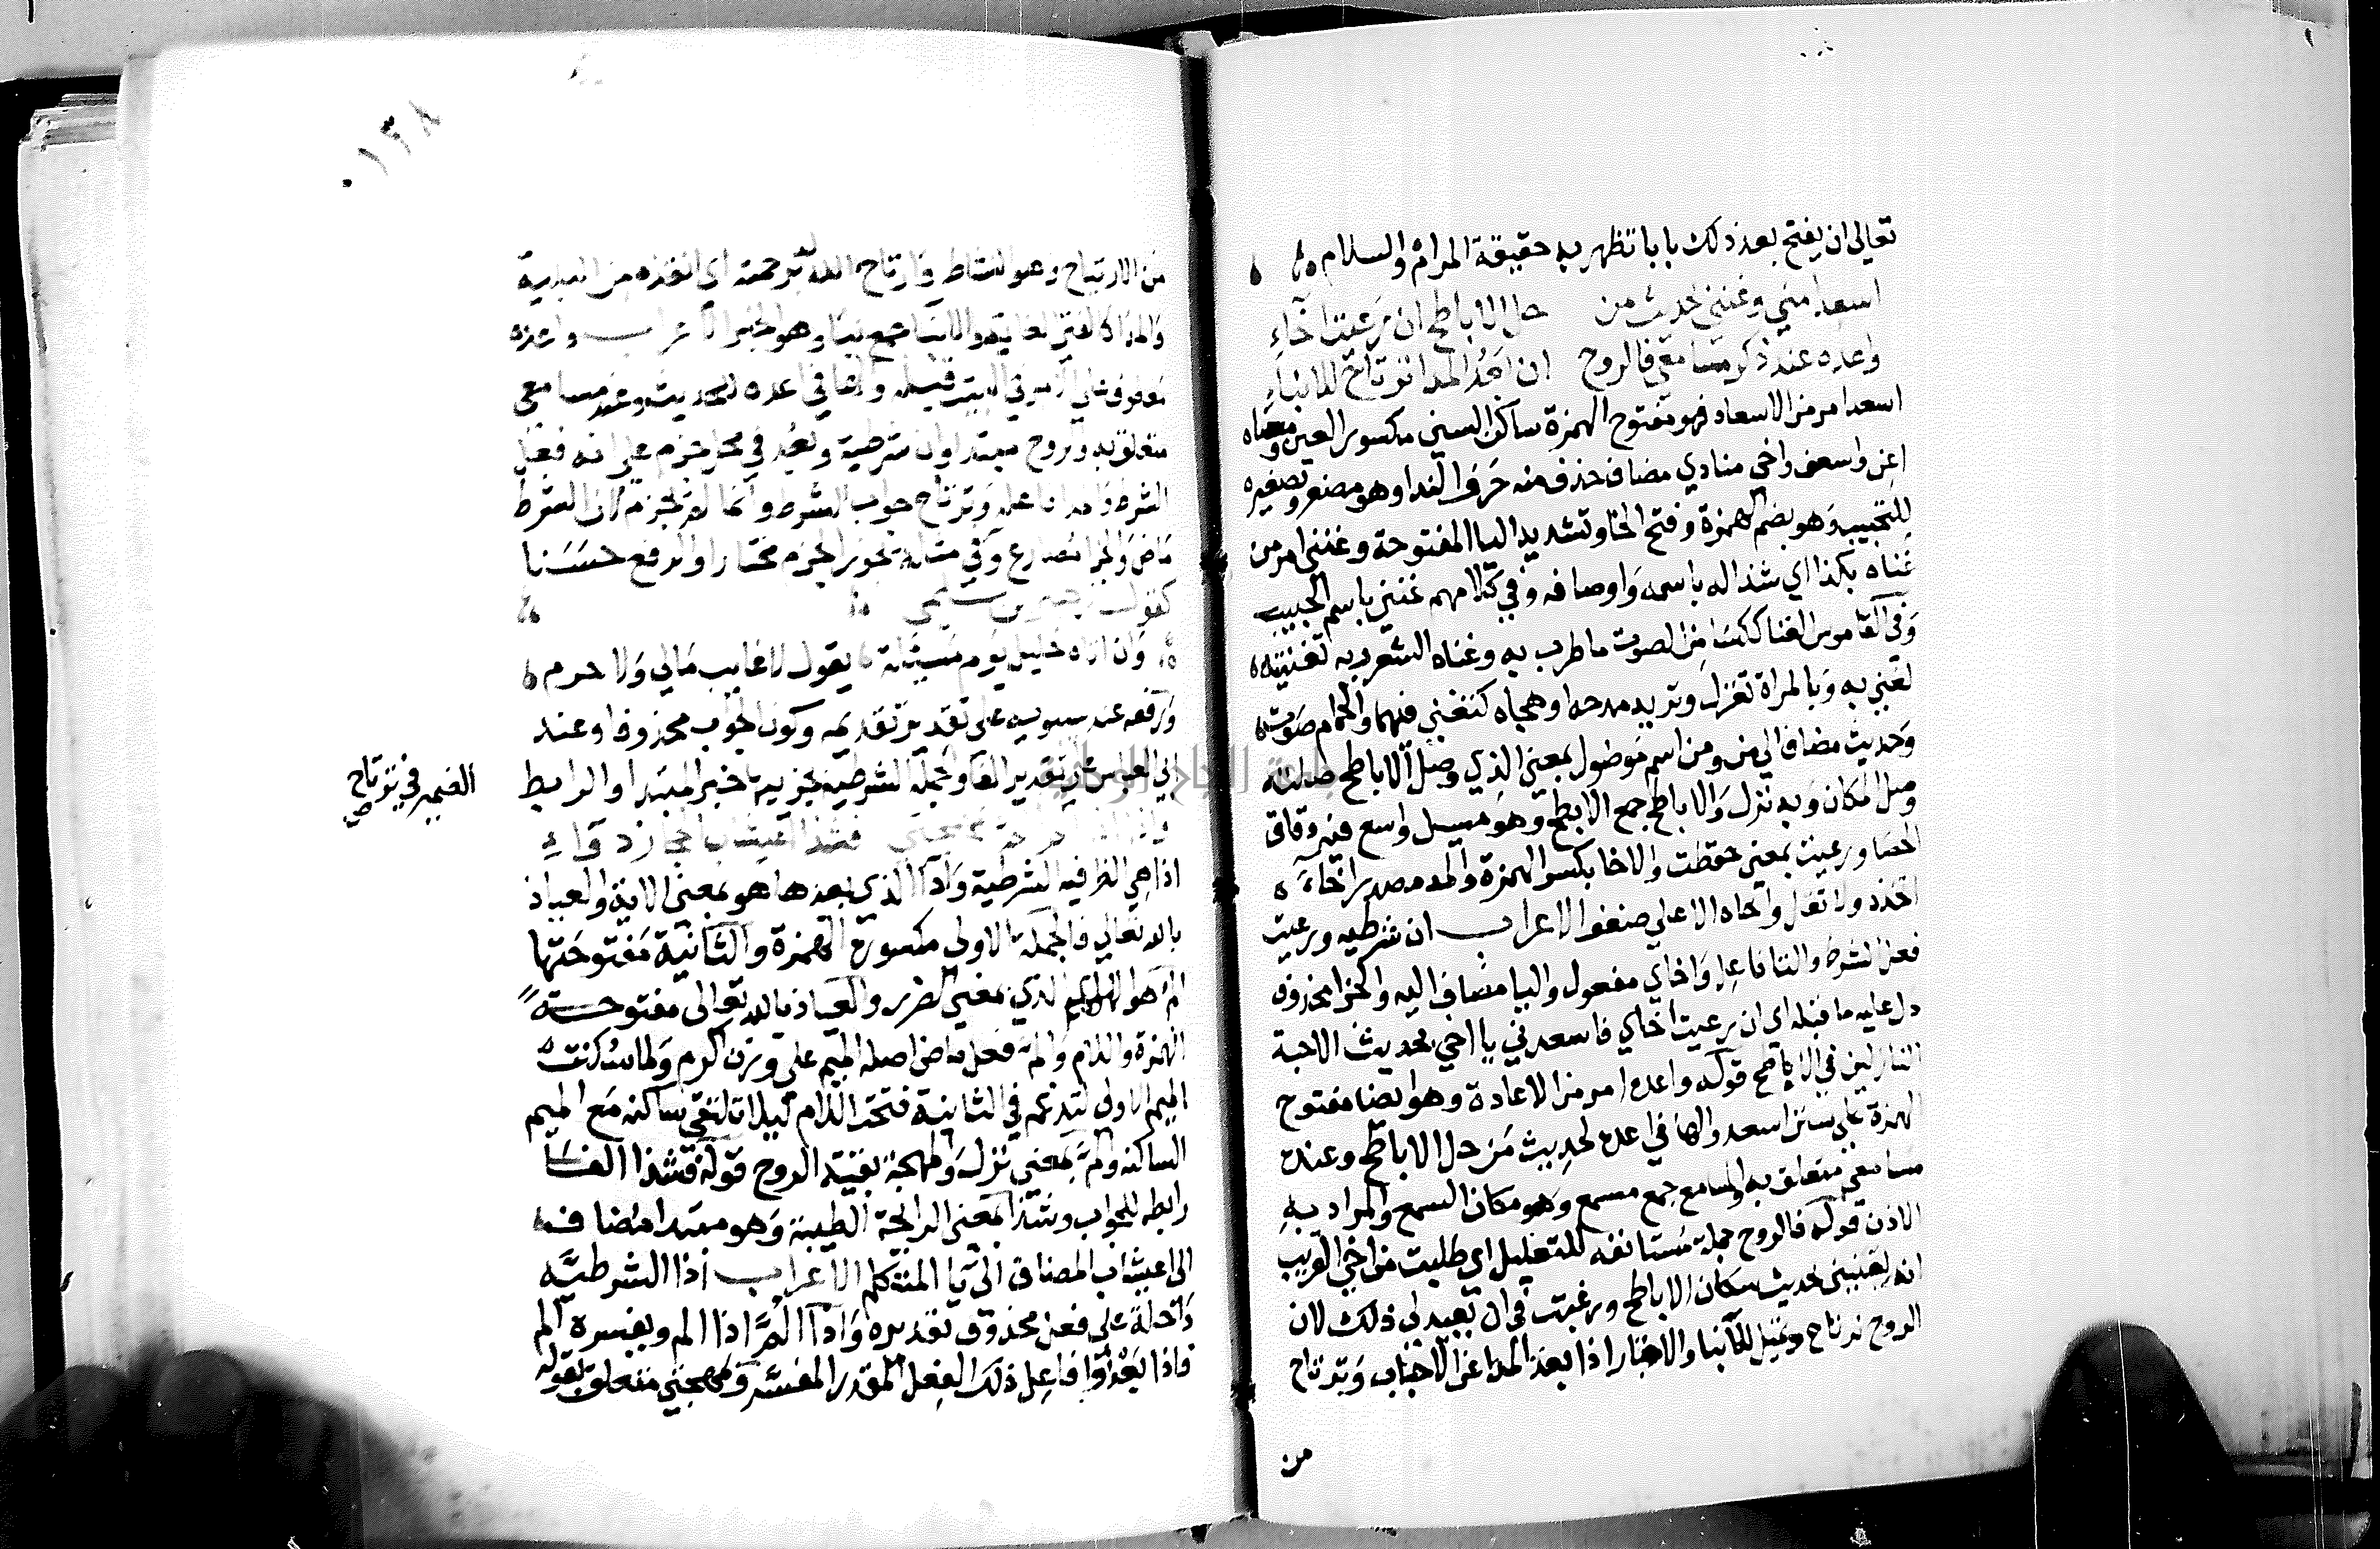 تعالى ان يفتح بعد ذلك بابا تظهر به حقيقة المرام والسلام
اسعد اخي وغنني بحديث من حل الاباطح ان رعيت اخاء
واعده عند مسامعي فالروح ان بعد المدا ترتاح للانباء
اسعد امر من الاسعاد فهو مفتوح الهمزة ساكن السين مكسور العين ومعناه
اعن واسعف واخي منادي مضاف حذف منه حرف الندا وهو مصغر وتصغيره
للتحبيب وهو بضم الهمزة وفتح الخا وتشديد اليا المفتوحة وغنني امر من
غناه بكذا اي شذا له باسمه واوصافه وفي كلامهم غنني باسم الحبيب
وفي القاموس الغنا ككسا من الصوت ما طرب به وغناه الشعر وبه تغنية
تغني به وبالمراة تغزل وبزيد مدحه او هجاه كتغني فيهما والحمام صوت
وحديث مضاف الي من ومن اسم موصول بمعني الذي وحل الاباطح صلته
وحل المكان وبه نزل والاباطح جمع الابطح وهو مسيل واسع فيه دقاق
الحصا ورعيت بمعنى حفظت والاخا بكسر الهمزة والمد مصدر اخاه
اتخذ ولا تقل واخاه الا على ضعف الاعراب ان شرطيه ورعيت
فعل الشرط والتا فاعل واخاي مفعول واليا مضاف اليه والجزا محذوف
دل عليه ما قبله اي ان رعيت اخاي فاسعدني يا اخي بحديث الاحبة
النازلين في الاباطح قوله واعده امر من الاعادة وهو ايضا مفتوح
الهمزة علي سنن اسعد والها في اعده لحديث من حل الاباطح وعند
مسامعي متعلق به والمسامع جمع مسمع وهو مكان السمع والمراد به
الاذن قوله فالروح جملة مستانفه للتعليل اي طلبت من اخي القريب
انه يغنيني بحديث سكان الاباطح ورغبت في ان يعيد لي ذلك لان
الروح ترتاح وتميل للانبا والاخبار اذا بعد المدا عن الاحباب وترتاح
من
٠١٣٨
من الارتياح وهو النشاط وارتاح الله له برحمته اي انقذه من البلية
والمدا كالفتى الغاية والانبا جمع نبا وهو الخبر الاعراب واعده
معطوف على اسعد في البيت قبله والها في اعده للحديث وعند مسامعي
متعلق به والروح مبتدا وان شرطية وبعد في محل جزم علي انه فعل
الشرط والمدا فاعله وترتاح جواب الشرط وانما لم يجزم لان الشرط
ماض والجزا مضارع وفي مثله يجوز الجزم مختارا والرفع حسنا
كقول زهير بن سلمى
وان اتاه خليل يوم مسئلة يقول لا غايب مالي ولا حرم
ورفعه عند سيبويه على تقدير تقديمه وكون الجواب محذوفا وعند
ابي العباس على تقدير الفا والجملة الشرطية بجزييها خبر المبتدا والرابط
الضمير في ترتاح
صح
فشذا اعيشاب الحجاز دواء
اذا هي الظرفيه الشرطية واذا الذي بعدها هو بمعنى الاذية والعياذ
بالله تعالي فالجملة الاولى مكسورة الهمزة والثانية مفتوحتها
الم هو الالم الذي بمعني الضرر والعياذ بالله تعالى مفتوحة
الهمزة واللام والم فعل ماض اصله الميم على وزن اكرم ولما سكنت
الميم الاولى لتدغم في الثانية فتحت اللام ليلا تلتقي ساكنه مع الميم
الساكنه والم بمعني نزل والمهجة بقية الروح قوله فشذا الفا
رابطه للجواب وشذا بمعنى الرائحة الطيبة وهو مبتدا مضاف
الى اعيشاب المضاف الى يا المتكلم الاعراب اذا الشرطية
داخلة على فعل محذوف تقديره واذا الم اذا الم ويفسره الم
فاذا بعد اذا فاعل ذلك الفعل المقدر المفسر وبمهجتي متعلق بقوله